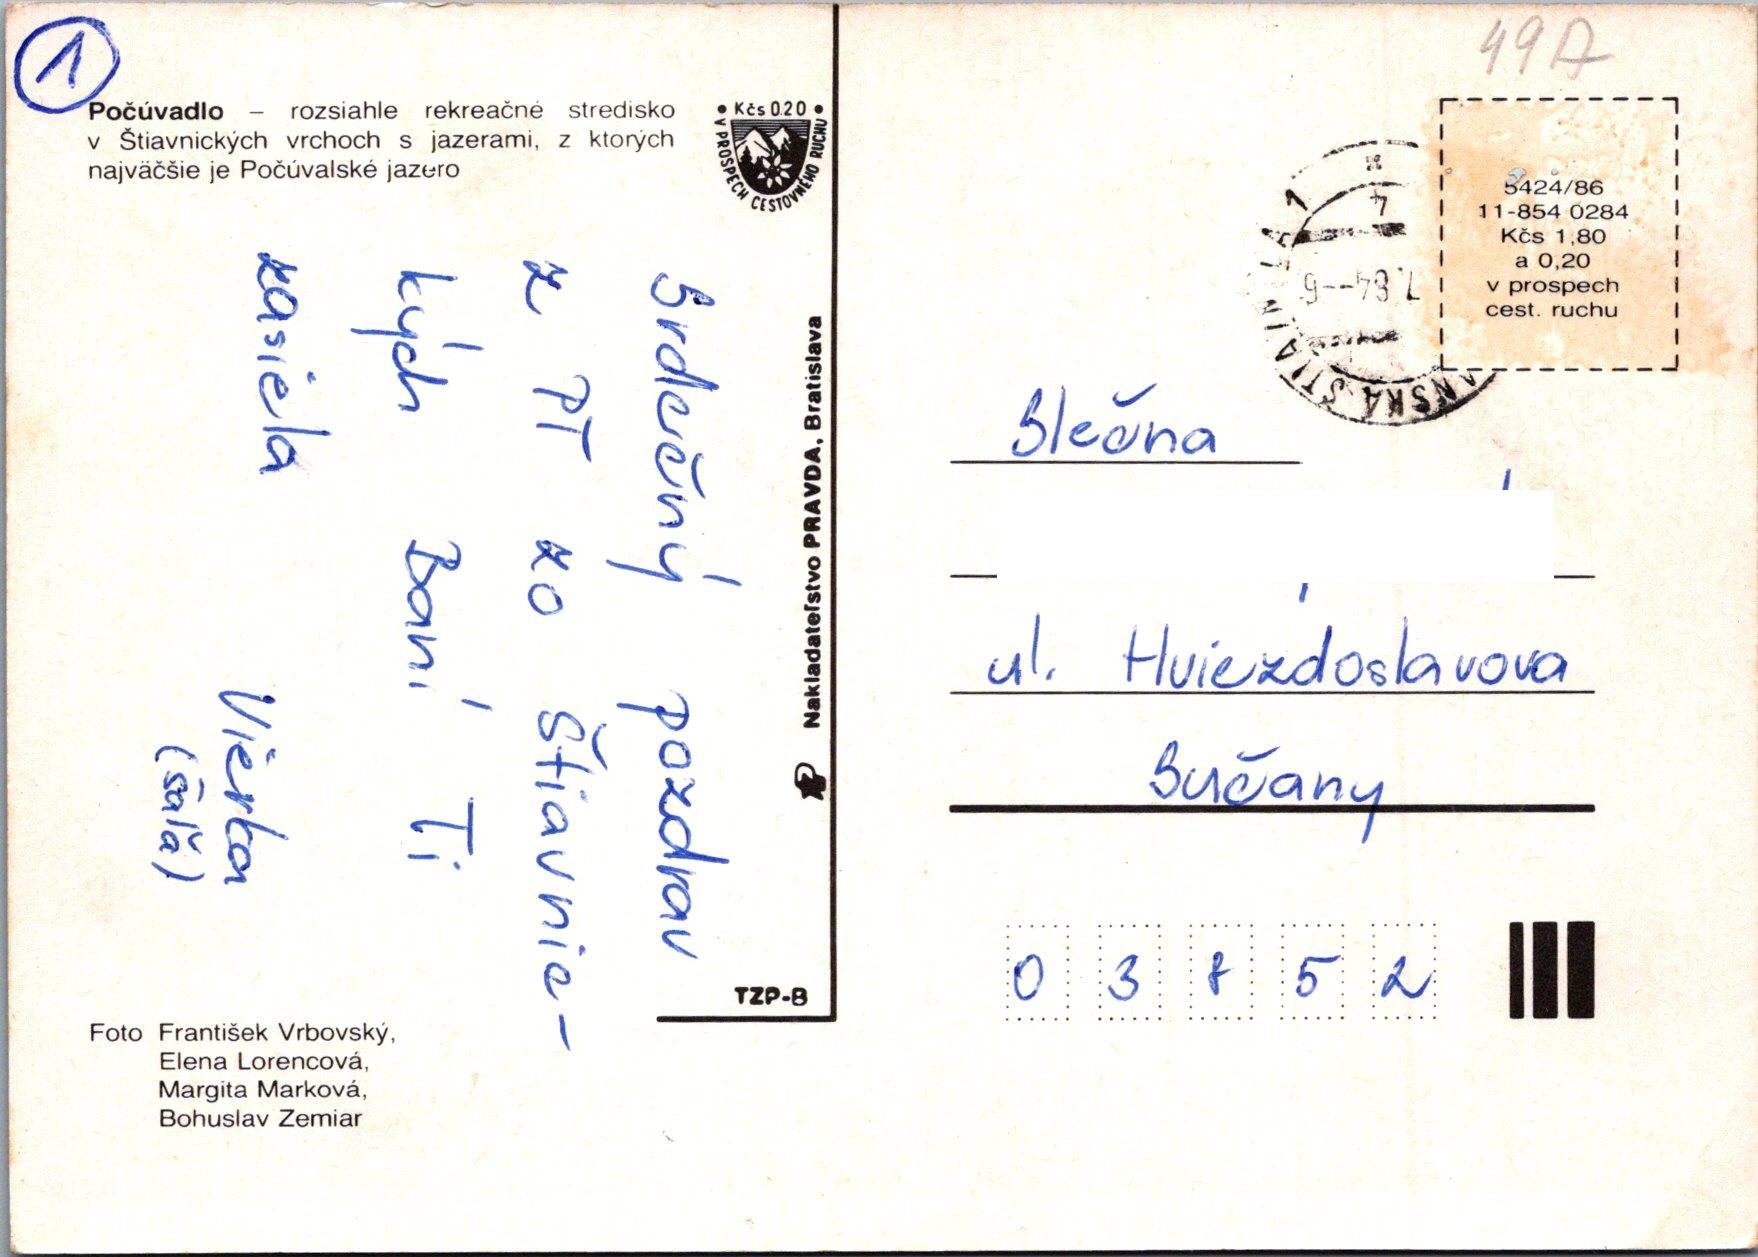 1
Počúvadlo – rozsiahle rekreačné stredisko
v Štiavnických vrchoch s jazerami, z ktorých
najväčšie je Počúvalské jazero
Kčs 0.20
V PROSPECH CESTOVNÉHO RUCHU
Srdečný pozdrav
z PT zo Štiavnic-
kých Baní Ti
zasiela
Vierka
(Šaľa)
Nakladateľstvo PRAVDA, Bratislava
TZP-B
Foto František Vrbovský,
Elena Lorencová,
Margita Marková,
Bohuslav Zemiar
49A
5424/86
11-854 0284
Kčs 1,80
a 0,20
v prospech
cest. ruchu
ANSKÁ ŠTIAVNICA 1
Slečna
ul. Hviezdoslavova
Sučany
03852